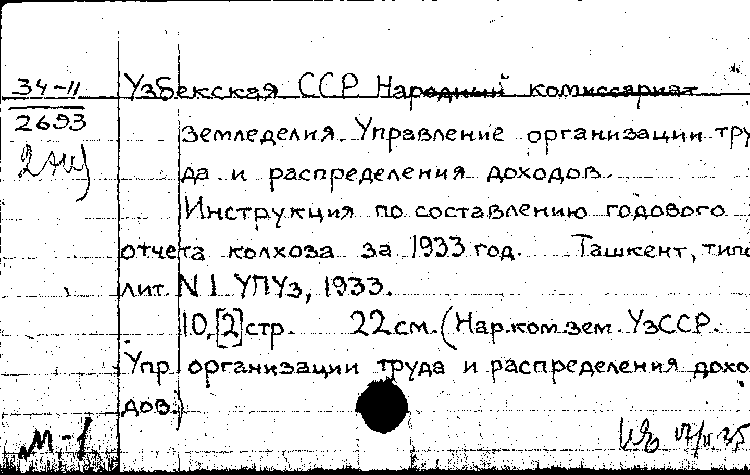 34-11
2693
Узбекская ССР Народный комиссариат
земледелия. Управление организации тру
да и распределения доходов.
Инструкция по составлению годового
отчета колхоза за 1933 год. Ташкент, типо
лит. N 1 УПУз, 1933.
10,[2]стр. 22см. (Нар.ком.зем. УзССР.
Упр организации труда и распределения дохо
дов.)
М-1